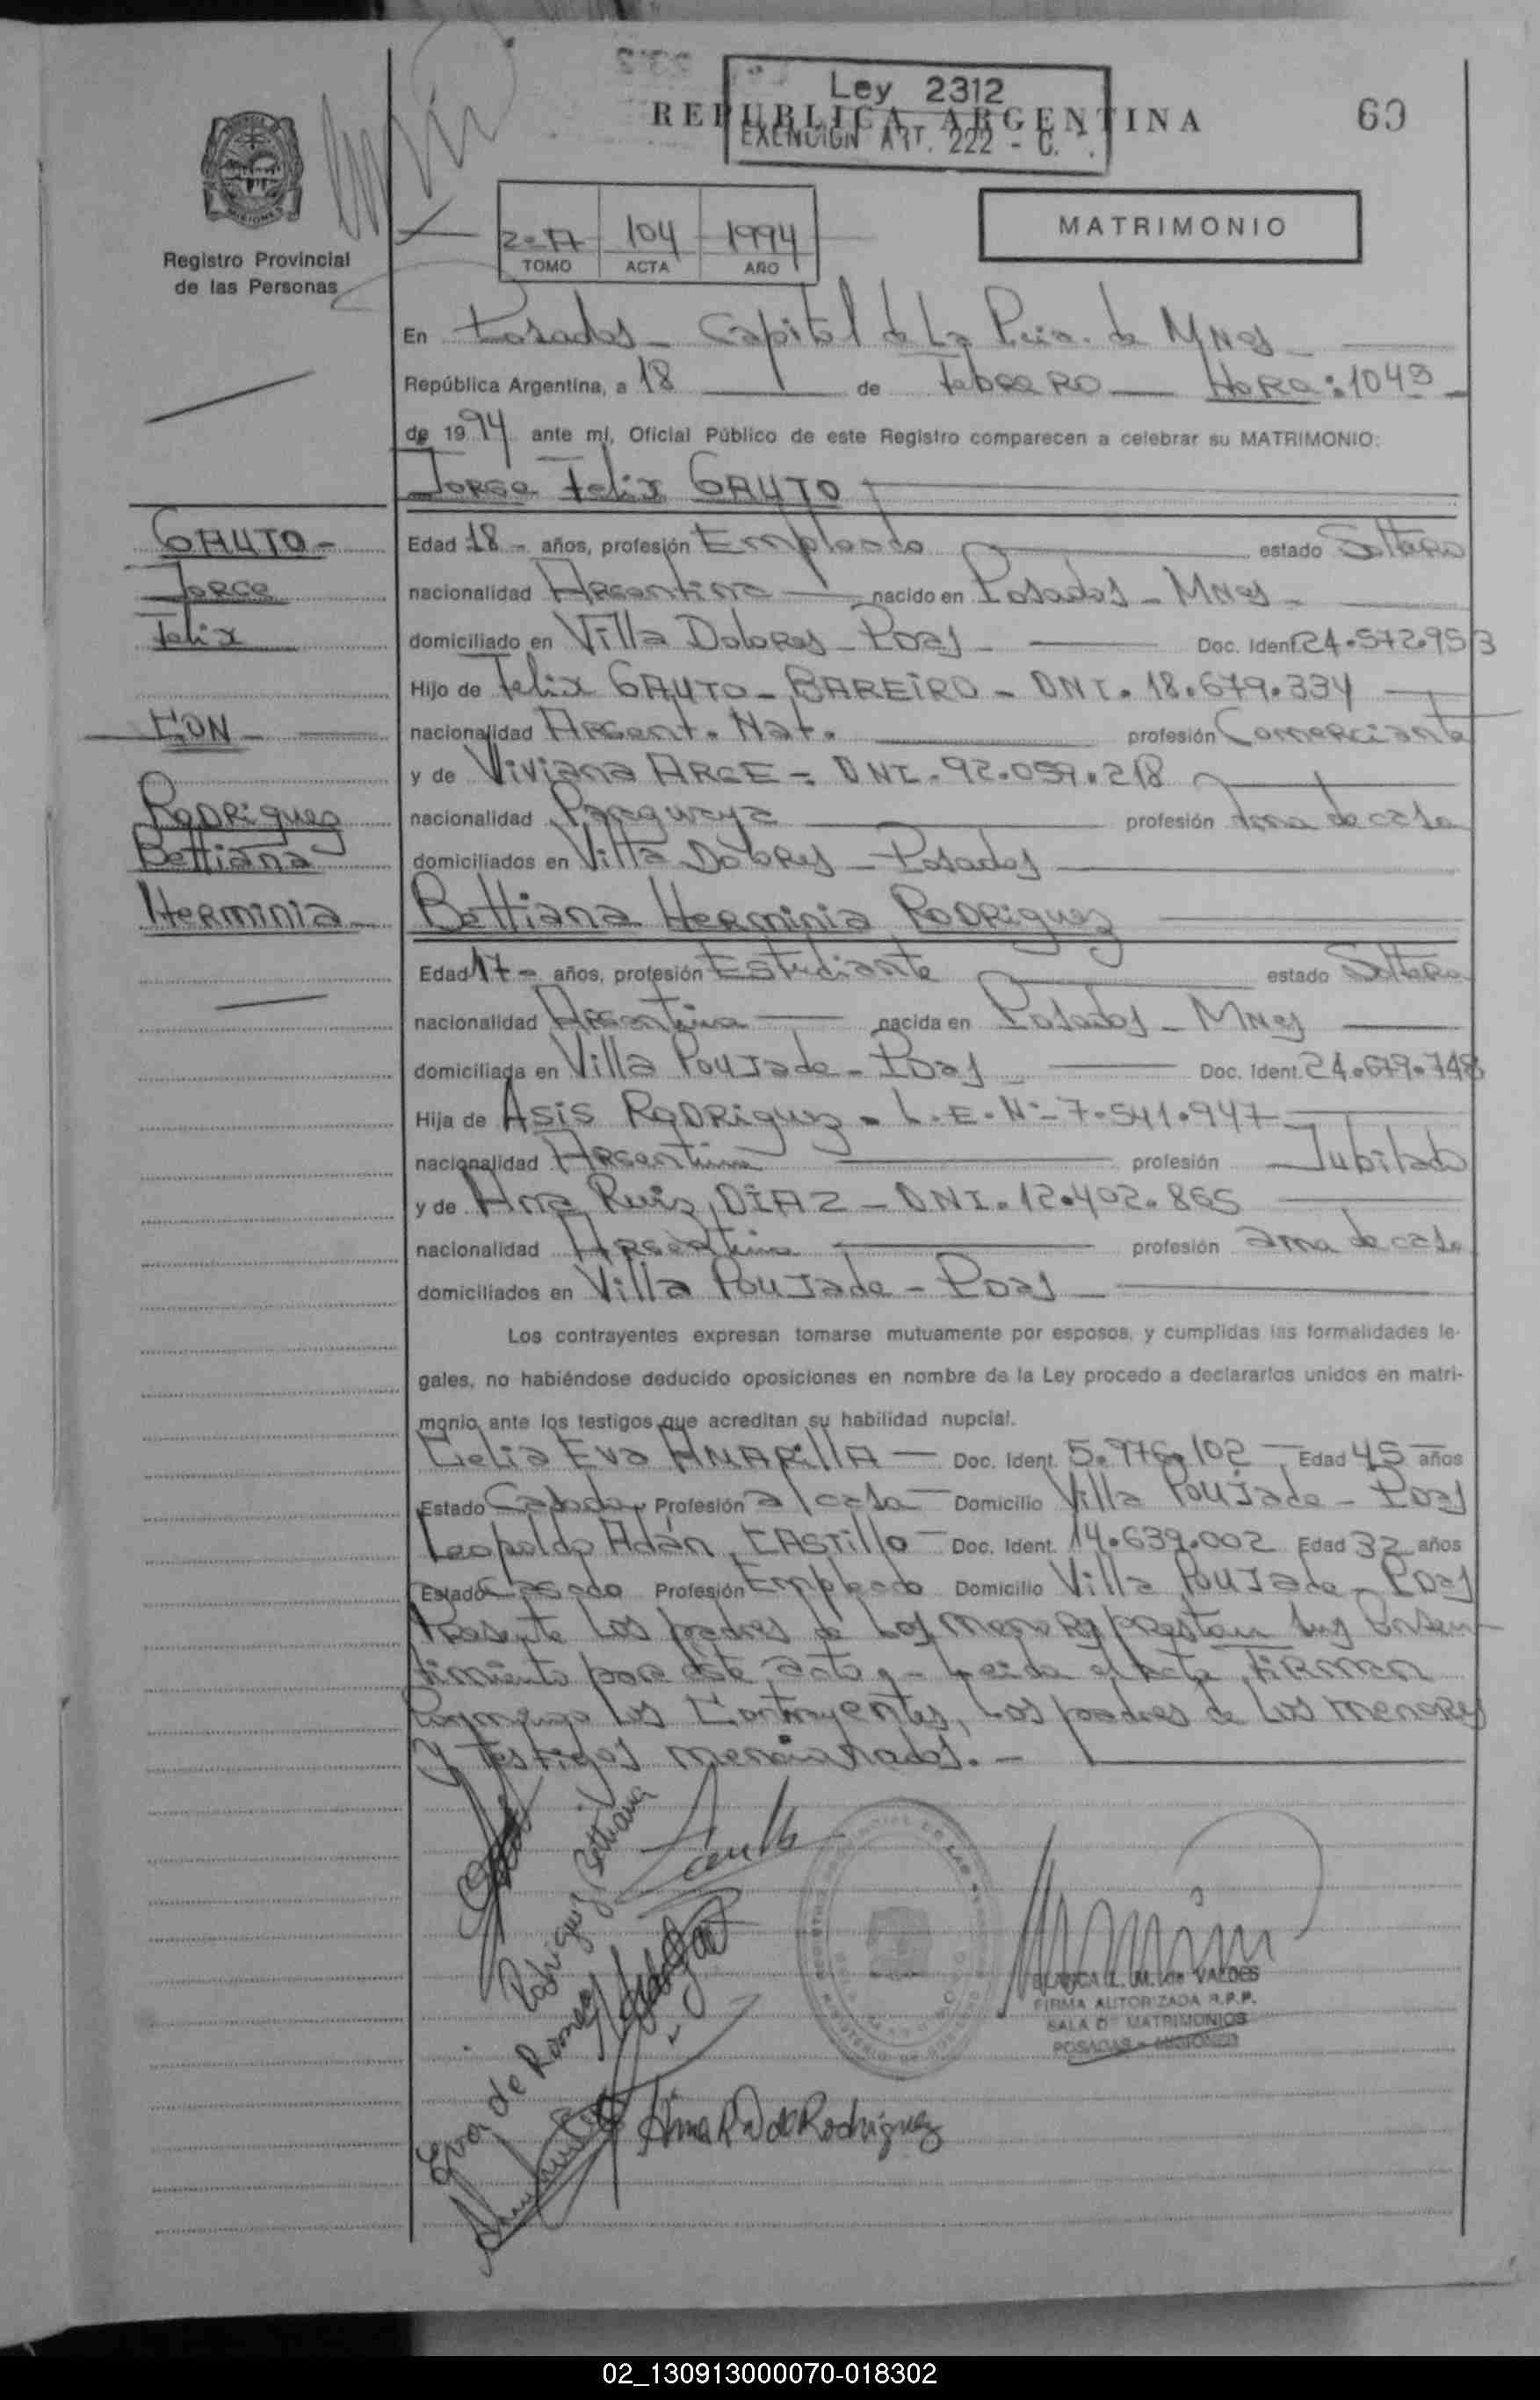 Ley 2312
REPUBLICA ARGENTINA
EXENCION ART. 222 - C.
60
MISIONES
Registro Provincial
de las Personas
2-A 104 1994
TOMO ACTA AÑO
MATRIMONIO
En Posadas - Capital de La Pcia. de Mnes -
República Argentina, a 18 de Febrero Hora: 1045 -
de 1994 ante mí, Oficial Público de este Registro comparecen a celebrar su MATRIMONIO:
Jorge Felix GAUTO
GAUTO -
Jorge
Felix
CON -
Rodriguez
Bettiana
Herminia
Edad 18 - años, profesión Empleado estado Soltero
nacionalidad Argentina nacido en Posadas - Mnes -
domiciliado en Villa Dolores - Pdas - Doc. Ident. 24.572.953
Hijo de Felix GAUTO - BAREIRO - DNI. 18.679.334
nacionalidad Argent. Nat. profesión Comerciante
y de Viviana ARCE = DNI. 92.059.218
nacionalidad Paraguaya profesión Ama de casa
domiciliados en Villa Dolores - Posadas
Bettiana Herminia Rodriguez
Edad 17 - años, profesión Estudiante estado Soltera
nacionalidad Argentina nacida en Posadas - Mnes
domiciliada en Villa Poujade - Pdas Doc. Ident. 24.679.748
Hija de Asis Rodriguez - L.E. Nº 7.541.947
nacionalidad Argentina profesión Jubilado
y de Ana Ruiz DIAZ - DNI. 12.402.865
nacionalidad Argentina profesión ama de casa
domiciliados en Villa Poujade - Pdas
Los contrayentes expresan tomarse mutuamente por esposos, y cumplidas las formalidades le-
gales, no habiéndose deducido oposiciones en nombre de la Ley procedo a declararlos unidos en matri-
monio ante los testigos que acreditan su habilidad nupcial.
Celia Eva AMARILLA - Doc. Ident. 5.976.102 - Edad 45 años
Estado Casada Profesión a/casa Domicilio Villa Poujade - Pdas
Leopoldo Adán CASTILLO - Doc. Ident. 14.639.002 Edad 32 años
Estado Casado Profesión Empleado Domicilio Villa Poujade - Pdas
Presente Los padres de Los menores prestan sus Consen-
timiento por este acto, - Leida el Acta, FIRMAN
Conmigo los Contrayentes, Los padres de Los menores
y testigos mencionados. -
Rodriguez Bettiana
Eva de Romea
Ana R D de Rodriguez
BLANCA L. M. de VALDES
FIRMA AUTORIZADA R.P.P.
SALA DE MATRIMONIOS
POSADAS - MISIONES
02_130913000070-018302